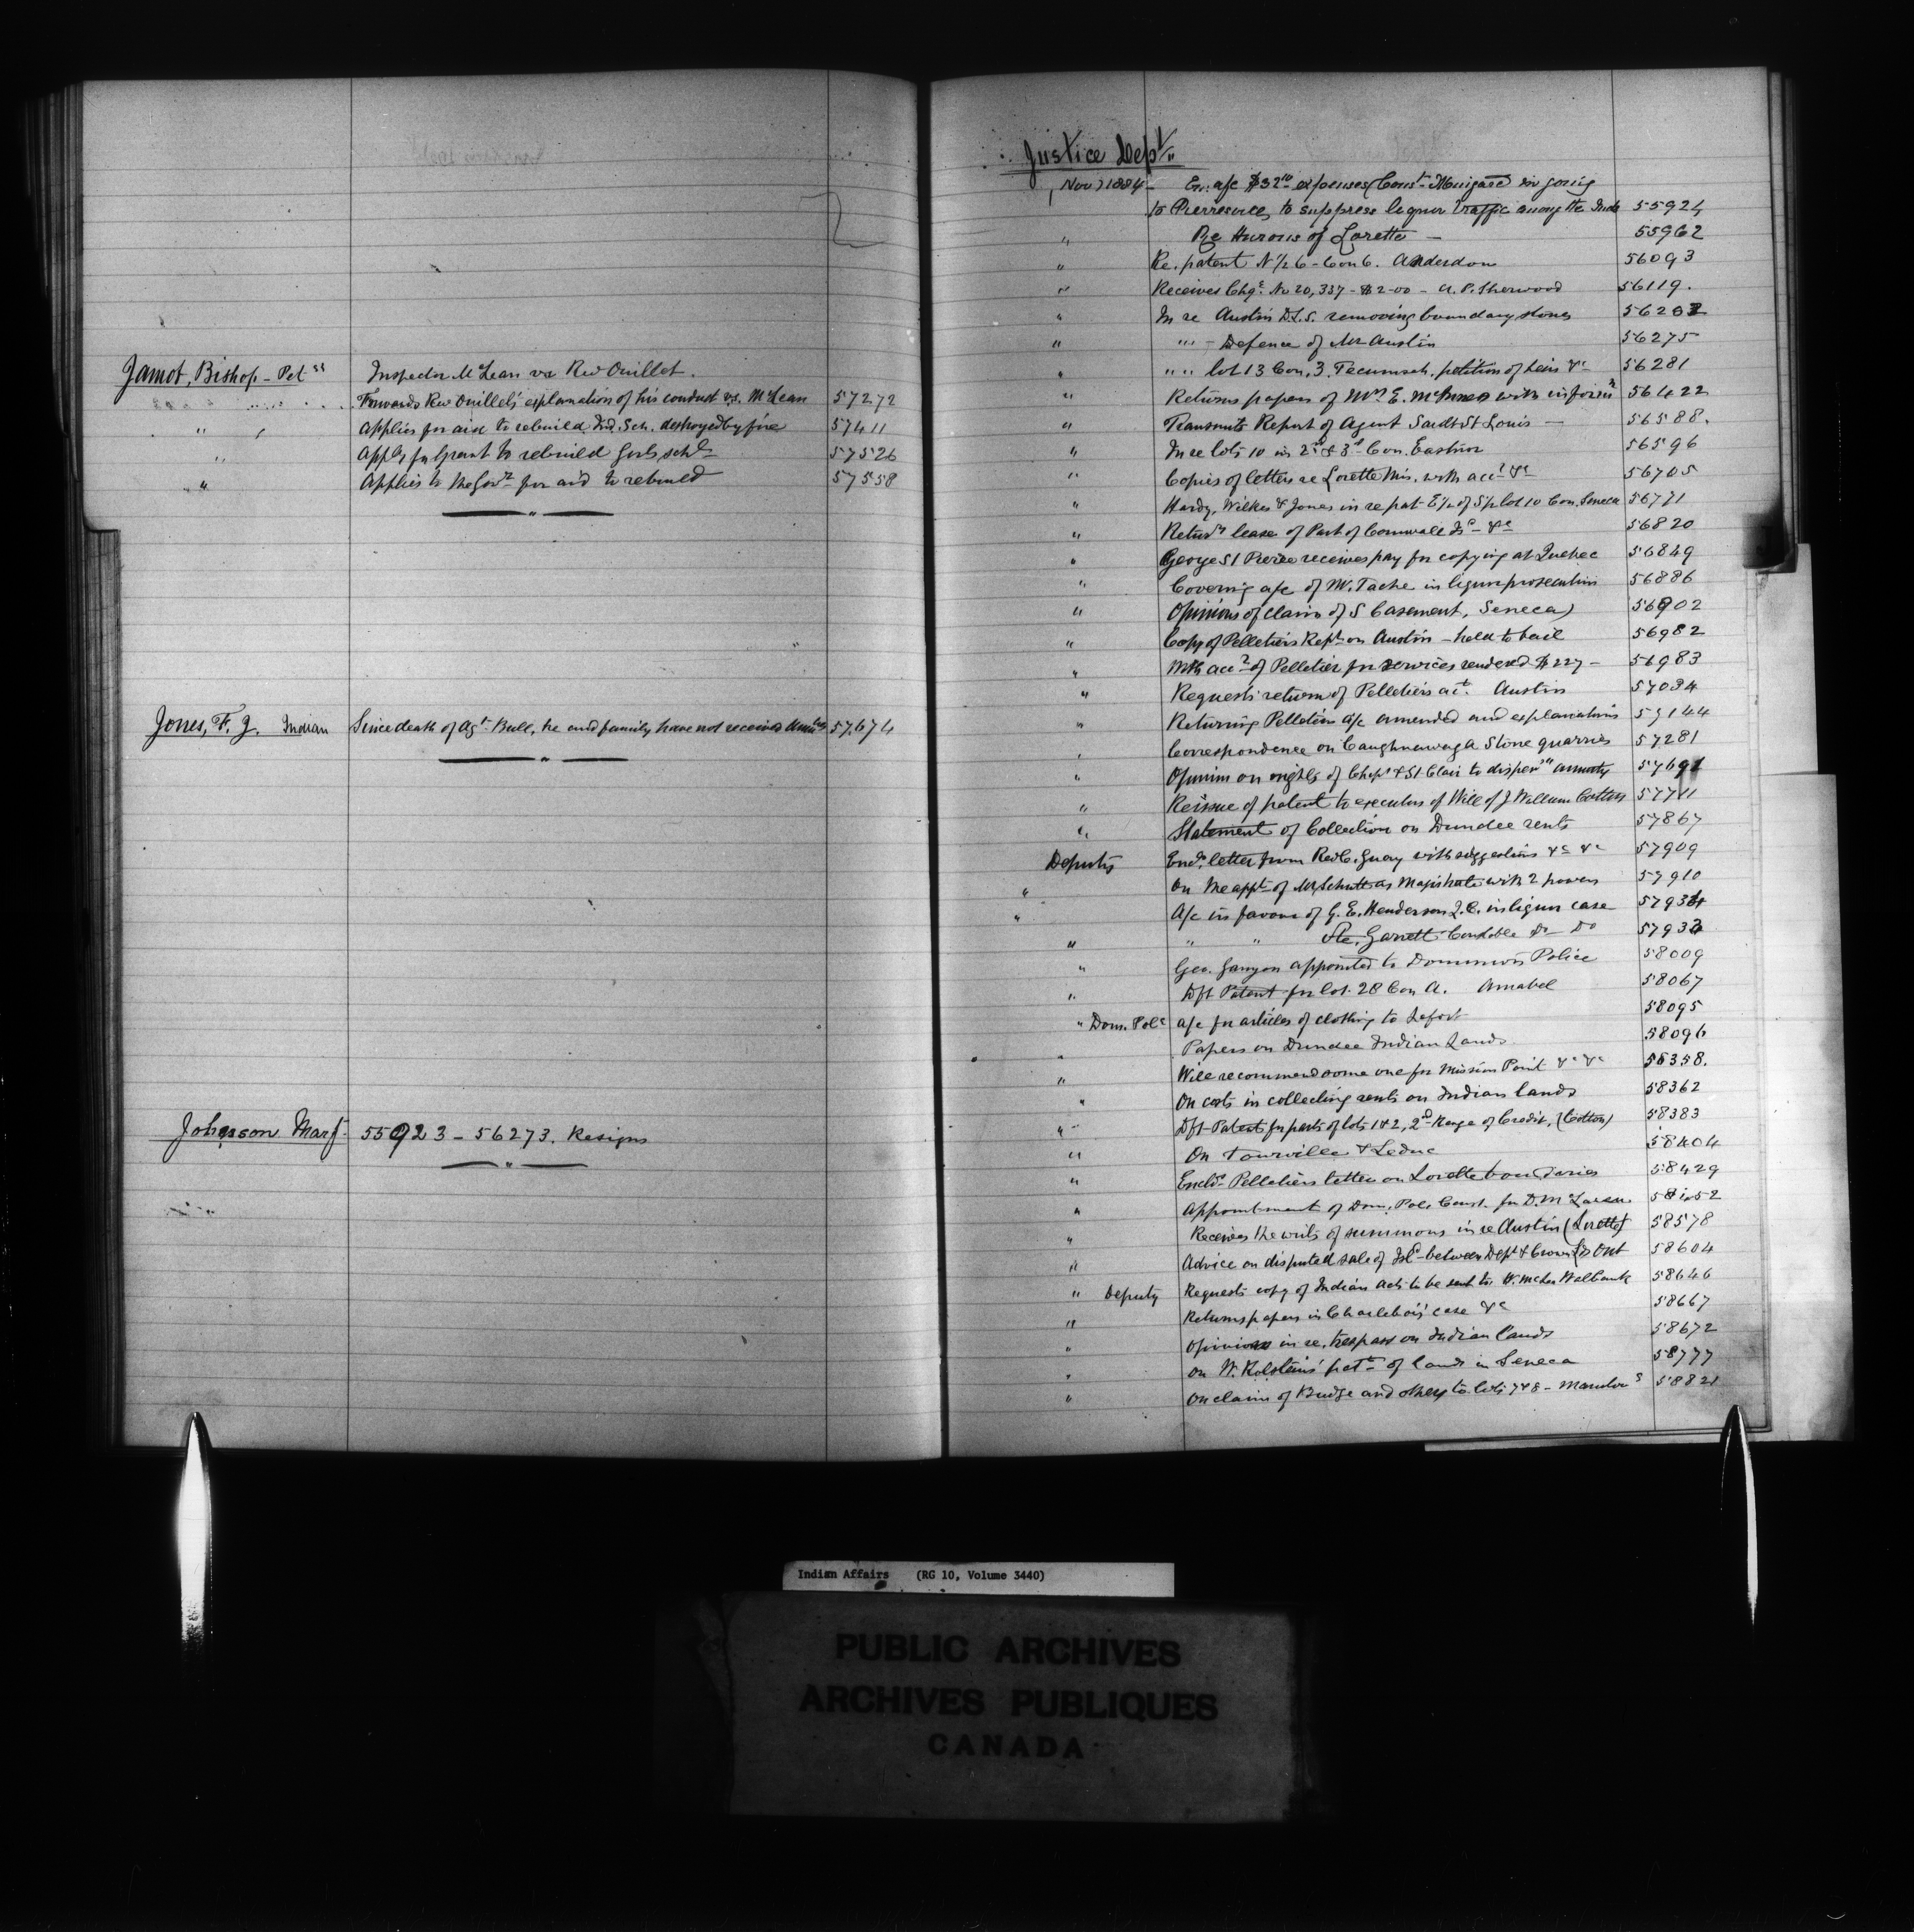 Jamot, Bishop - Pet
Inspector McLean vs Rev Ouillet.
Forwards Rev Ouillet's explanation of his conduct vs. McLean 57272
" Applies for aid to rebuild Ind. Sch. destroyed by fire 57411
" for Grant to rebuild Girls sch 57526
" Applies to the Govt for aid to rebuild 57558
Jones, F. J. Indian Since death of Agt Bull, he and family have not received 57,674
Johnson Marg. 55923 - 56273. Resigns
Justice Dept
Nov 1884 En. a/c $32 expenses Const in going
to suppress liquor traffic among the Inds 55924
" Re Hurons of Lorette — 55962
" Re. patent N 1/2 6 - Con 6. Anderdon 56093
" Receives Chq. No 20,337 - $2-00 - A. P. Sherwood 56119.
" In re Austin D.L.S. removing boundary stones
" " - Defence of Mr Austin 56275
" " lot 13 Con. 3. Tecumseh, petition of heirs &c 56281
" Returns papers of Mrs E. McInnes with inform 56422
" Transmits Report of Agent St Louis — 56588.
" In re lots 10 in 2d & 3d Con. Eastnor 56596
" Copies of letters re Lorette with acct &c 56705
" Hardy, Wilkes & Jones in re pat E 1/2 of S 1/2 lot 10 Con. Seneca 56771
" lease of Part of Cornwall Isd &c 56820
" George St Pierre receives pay for copying at Quebec 56849
" Covering a/c of M. Tache in liquor prosecution 56886
" Opinion of claim of S Casement, Seneca 56902
" Copy of Pelletiers Rept on Austin - held to bail 56982
" With acct of Pelletier for services rendered $227 - 56983
" Requests return of Pelletiers act. Austin 57034
" Returning Pelletiers a/c amended and explanations 57144
" Correspondence on Caughnawaga Stone quarries 57281
" Opinion on rights of & St Clair to annuity 57691
" Reissue of patent to executors of Will of J William Cotton 57711
" Statement of Collection on Dundee rents 57867
Deputy Encl. letter from Rev C. Guay with suggestions &c &c 57909
" On the appt of Mr Schutt as Magistrate with 2 powers 57910
" A/c in favour of G. E. Henderson Q.C. in liquor case 57934
" " " Garrett Constable Do Do 57933
" Geo. appointed to Dominion Police 58009
" Dft Patent for lot. 28 Con A. Amabel 58067
" Dom. Pole a/c for articles of clothing to Lefort 58095
" Papers on Dundee Indian Lands 58096
" Will recommend some one for Mission Point &c &c 58358.
" On costs in collecting rents on Indian lands 58362
" Dft Patent for parts of lots 1 & 2, 2nd Range of Credit, (Cotton) 58383
" On Tourville & Leduc 58404
" Encls Pelletiers letter on Lorette boundaries 58429
" Appointment of Dom. Pol. Const. for D. McLaren
" Receives the writs of summons in re Austin (Lorette) 58578
" Advice on disputed sale of Isd between Dept & Crown Lds Ont 58604
" Deputy Requests copy of Indian Act to be sent to Walbank 58646
" Returns papers in Charlebois' case &c 58667
" Opinion in re. trespass on Indian lands 58672
" On W. Rolstein's pett of lands in Seneca 58777
" On claim of Budge and others to lots 7 & 8 - 58821
Indian Affairs (RG 10, Volume 3440)
PUBLIC ARCHIVES
ARCHIVES PUBLIQUES
CANADA